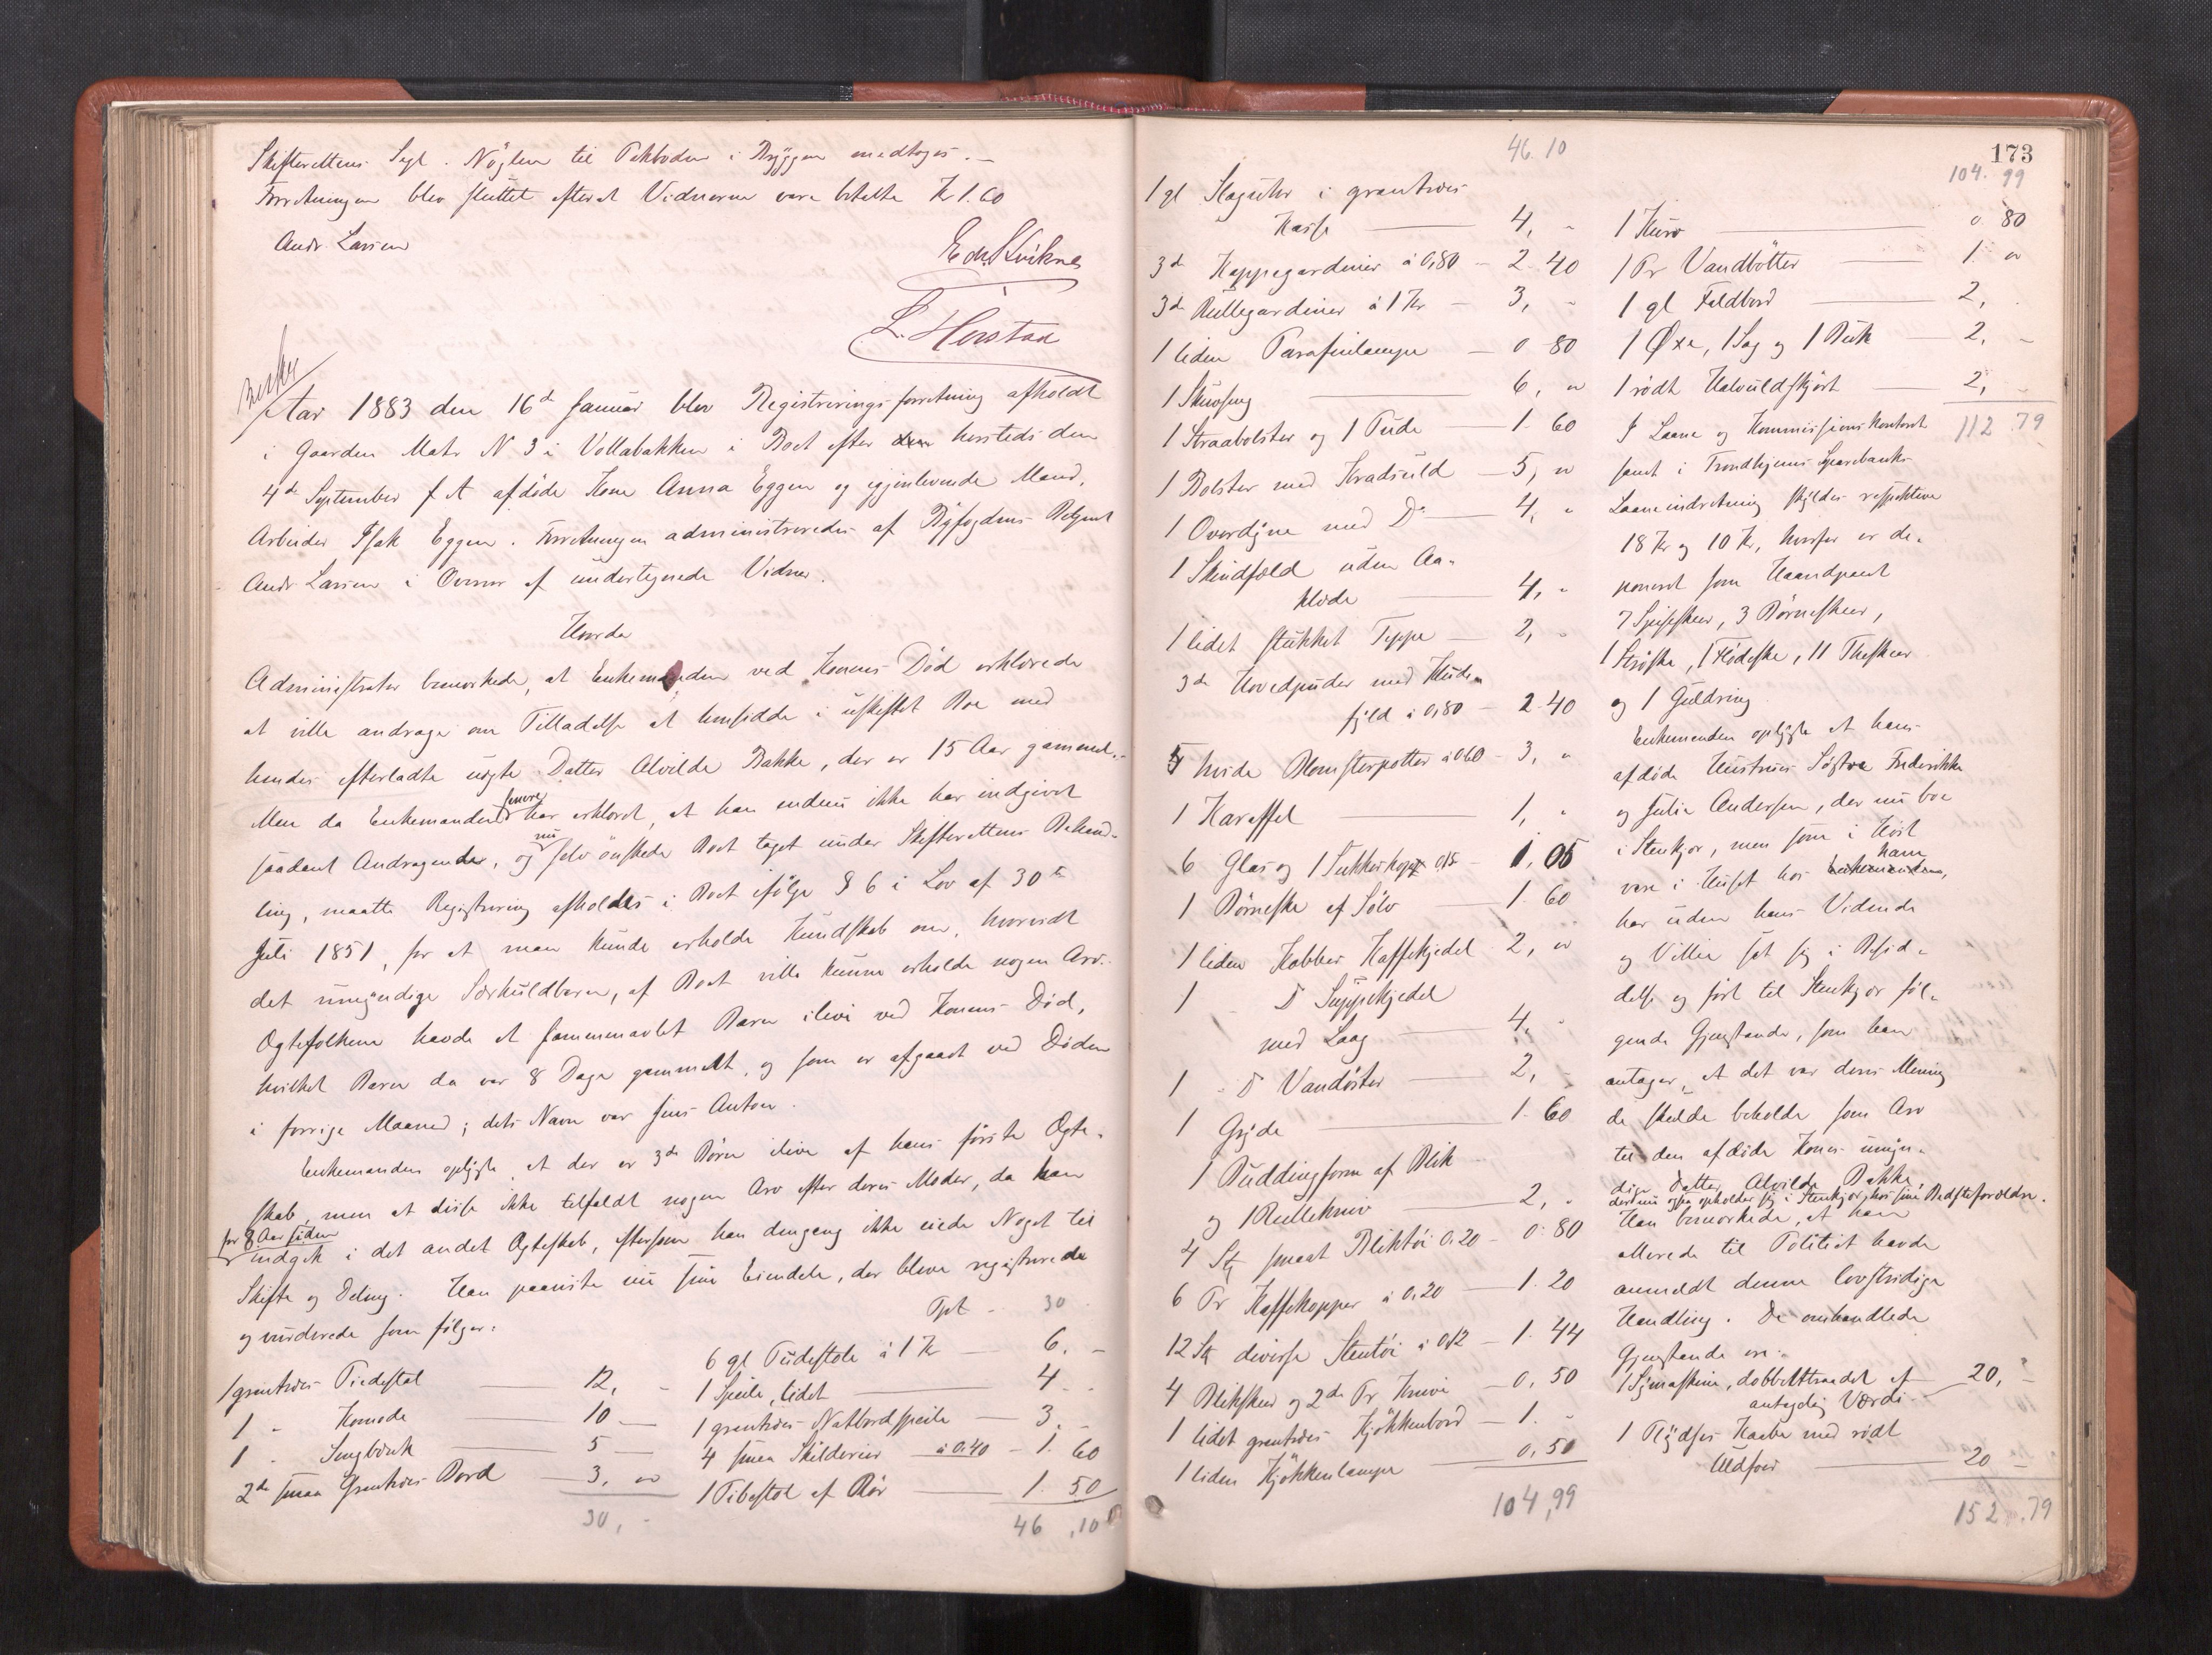 Skifterettens Segl. Nøglen til Pakboden i Bryggen medtoges. —
Forretningen blev sluttet efterat Vidnerne vare betalte Kr 1.60
Andr Larsen
Edv. Kviknes
L. Herstad
Aar 1883 den 16de Januar blev Registreringsforretning afholdt
i Gaarden Matr N 3 i Vollabakken i Boet efter den hersteds den
4de September f A afdøde Kone Anna Eggen og igjenlevende Mand,
Arbeider Isak Eggen. Forretningen administreredes af Byfogdens Betjent
Andr Larsen i Overvær af undertegnede Vidner.
Hvorda
Administrator bemærkede, at Enkemanden ved Konens Død erklærede
at ville andrage om Tilladelse at hensidde i uskiftet Boe med
hendes efterladte uægte Datter Alvilde Bakke, der er 15 Aar gammel. -
Men da Enkemanden senere har erklæret, at han endnu ikke har indgivet
saadant Andragende, og nu selv ønskede Boet taget under Skifterettens Behand-
ling, maatte Registrering afholdes i Boet ifølge § 6 i Lov af 30te
Juli 1851, for at man kunde erholde Kundskab om, hvorvidt
det umyndige Særkuldbarn, af Boet ville kunne erholde nogen Arv. -
Ægtefolkene havde et sammenavlet Barn ilive ved Konens Død,
hvilket Barn da var 8 Dage gammelt, og som er afgaaet ved Døden
i forrige Maaned; dets Navn var Jens Anton.
Enkemanden oplyste at der er 3de Børn ilive af hans første Ægte-
skab, men at disse ikke tilfaldt nogen Arv efter deres Moder, da han
for 8 Aar siden
indgik i det andet Ægteskab, eftersom han dengang ikke eiede Noget til
Skifte og Deling. Han paaviste nu sine Eiendele, der bleve registrerede
og vurderede som følger:
1 grantræs Piedestal — 12, -
1 - Komode — 10 —
1 - Sengbænk — 5 —
2de smaa Grantræs Bord — 3, "
30, -
Tpt - 30
6 gl Pudestole á 1 Kr — 6, -
1 Speile, lidet — 4 -
1 grantræs Natbordspeile — 3, -
4 smaa Skilderier á 0.40 — 1. 60
1 Pibestol af Rør — 1. 50
46,10
173
46.10
1 gl Slaguhr i grantræs
Kasse — 4, -
3de Kappegardiner á 0,80 — 2.40
3de Rullegardiner á 1 Kr — 3, -
1 liden Parafinlampe — 0 80
1 Skuvseng — 6, "
1 Straabolster og 1 Pude — 1. 60
1 Bolster med Kraduld — 5, "
1 Overdyne med Do — 4, "
1 Skindfæld uden Aa-
klæde — 4, -
1 lidet stukket Teppe — 2, -
3de Hovedpuder med Hude-
fyld á 0,80 — 2.40
5 hvide Blomsterpotter á 0.60 — 3, "
1 Karaffel — 1, "
6 Glas og 1 Sukkerkop 0.15 — 1.05
1 Børneske af Sølv — 1. 60
1 liden Kobber Kaffekjedel — 2, "
1 - D Suppekjedel
med Laag — 4, -
1 - D Vandøster — 2, -
1 Gryde — 1. 60
1 Puddingform af Blik
og 1 Rullekniv — 2, -
4 St smaat Bliktøi 0.20 — 0.80
6 Pr Kaffekopper á 0.20 — 1.20
12 St diverse Stentøi á 0.12 — 1.44
4 Blikskeer og 2de Pr Knive — 0,50
1 lidet grantræs Kjøkkenbord — 1. -
1 liden Kjøkkenlampe — 0,50
104,99
104. 99
1 Kurv — 0. 80
1 Pr Vandbøtter — 1. "
1 gl Foldbord — 2, -
1 Øxe, 1 Sag og 1 Buk — 2, -
1 rødt Halvuldskjørt — 2, -
112.79
I Laane og Kommissions Kontoret
samt i Trondhjems Sparebanks
Laaneindretning skyldes respektive
18 Kr og 10 Kr, hvorfor er de-
poneret som Haandpant
7 Spiseskeer, 3 Børneskeer,
1 Strøske, 1 Flødeske, 11 Theskeer
og 1 Guldring
Enkemanden oplyste at hans
afdøde Hustrues Søstre Frederikke
og Julie Andersen, der nu boe
i Stenkjær, men som i Høst
vare i Huset hos Enkemanden, ham
har uden hans Vidende
og Villie sat sig i Besid-
delse og ført til Stenkjær føl-
gende Gjenstande, som han
antager, at det var deres Mening
de skulde beholde som Arv
til den afdøde Kones umyn-
dige Datter Alvilde Bakke,
der nu ogsaa opholder sig i Stenkjær hos sine Bedsteforældre.
Han bemærkede, at han
allerede til Politiet havde
anmeldt denne lovstridige
Handling. De omhandlede
Gjenstande ere:
1 Symaskine, dobbelttraadet af
antagelig Værdi — 20, -
1 Plydses Kaabe med rødt
Uldfoer — 20 -
152.79